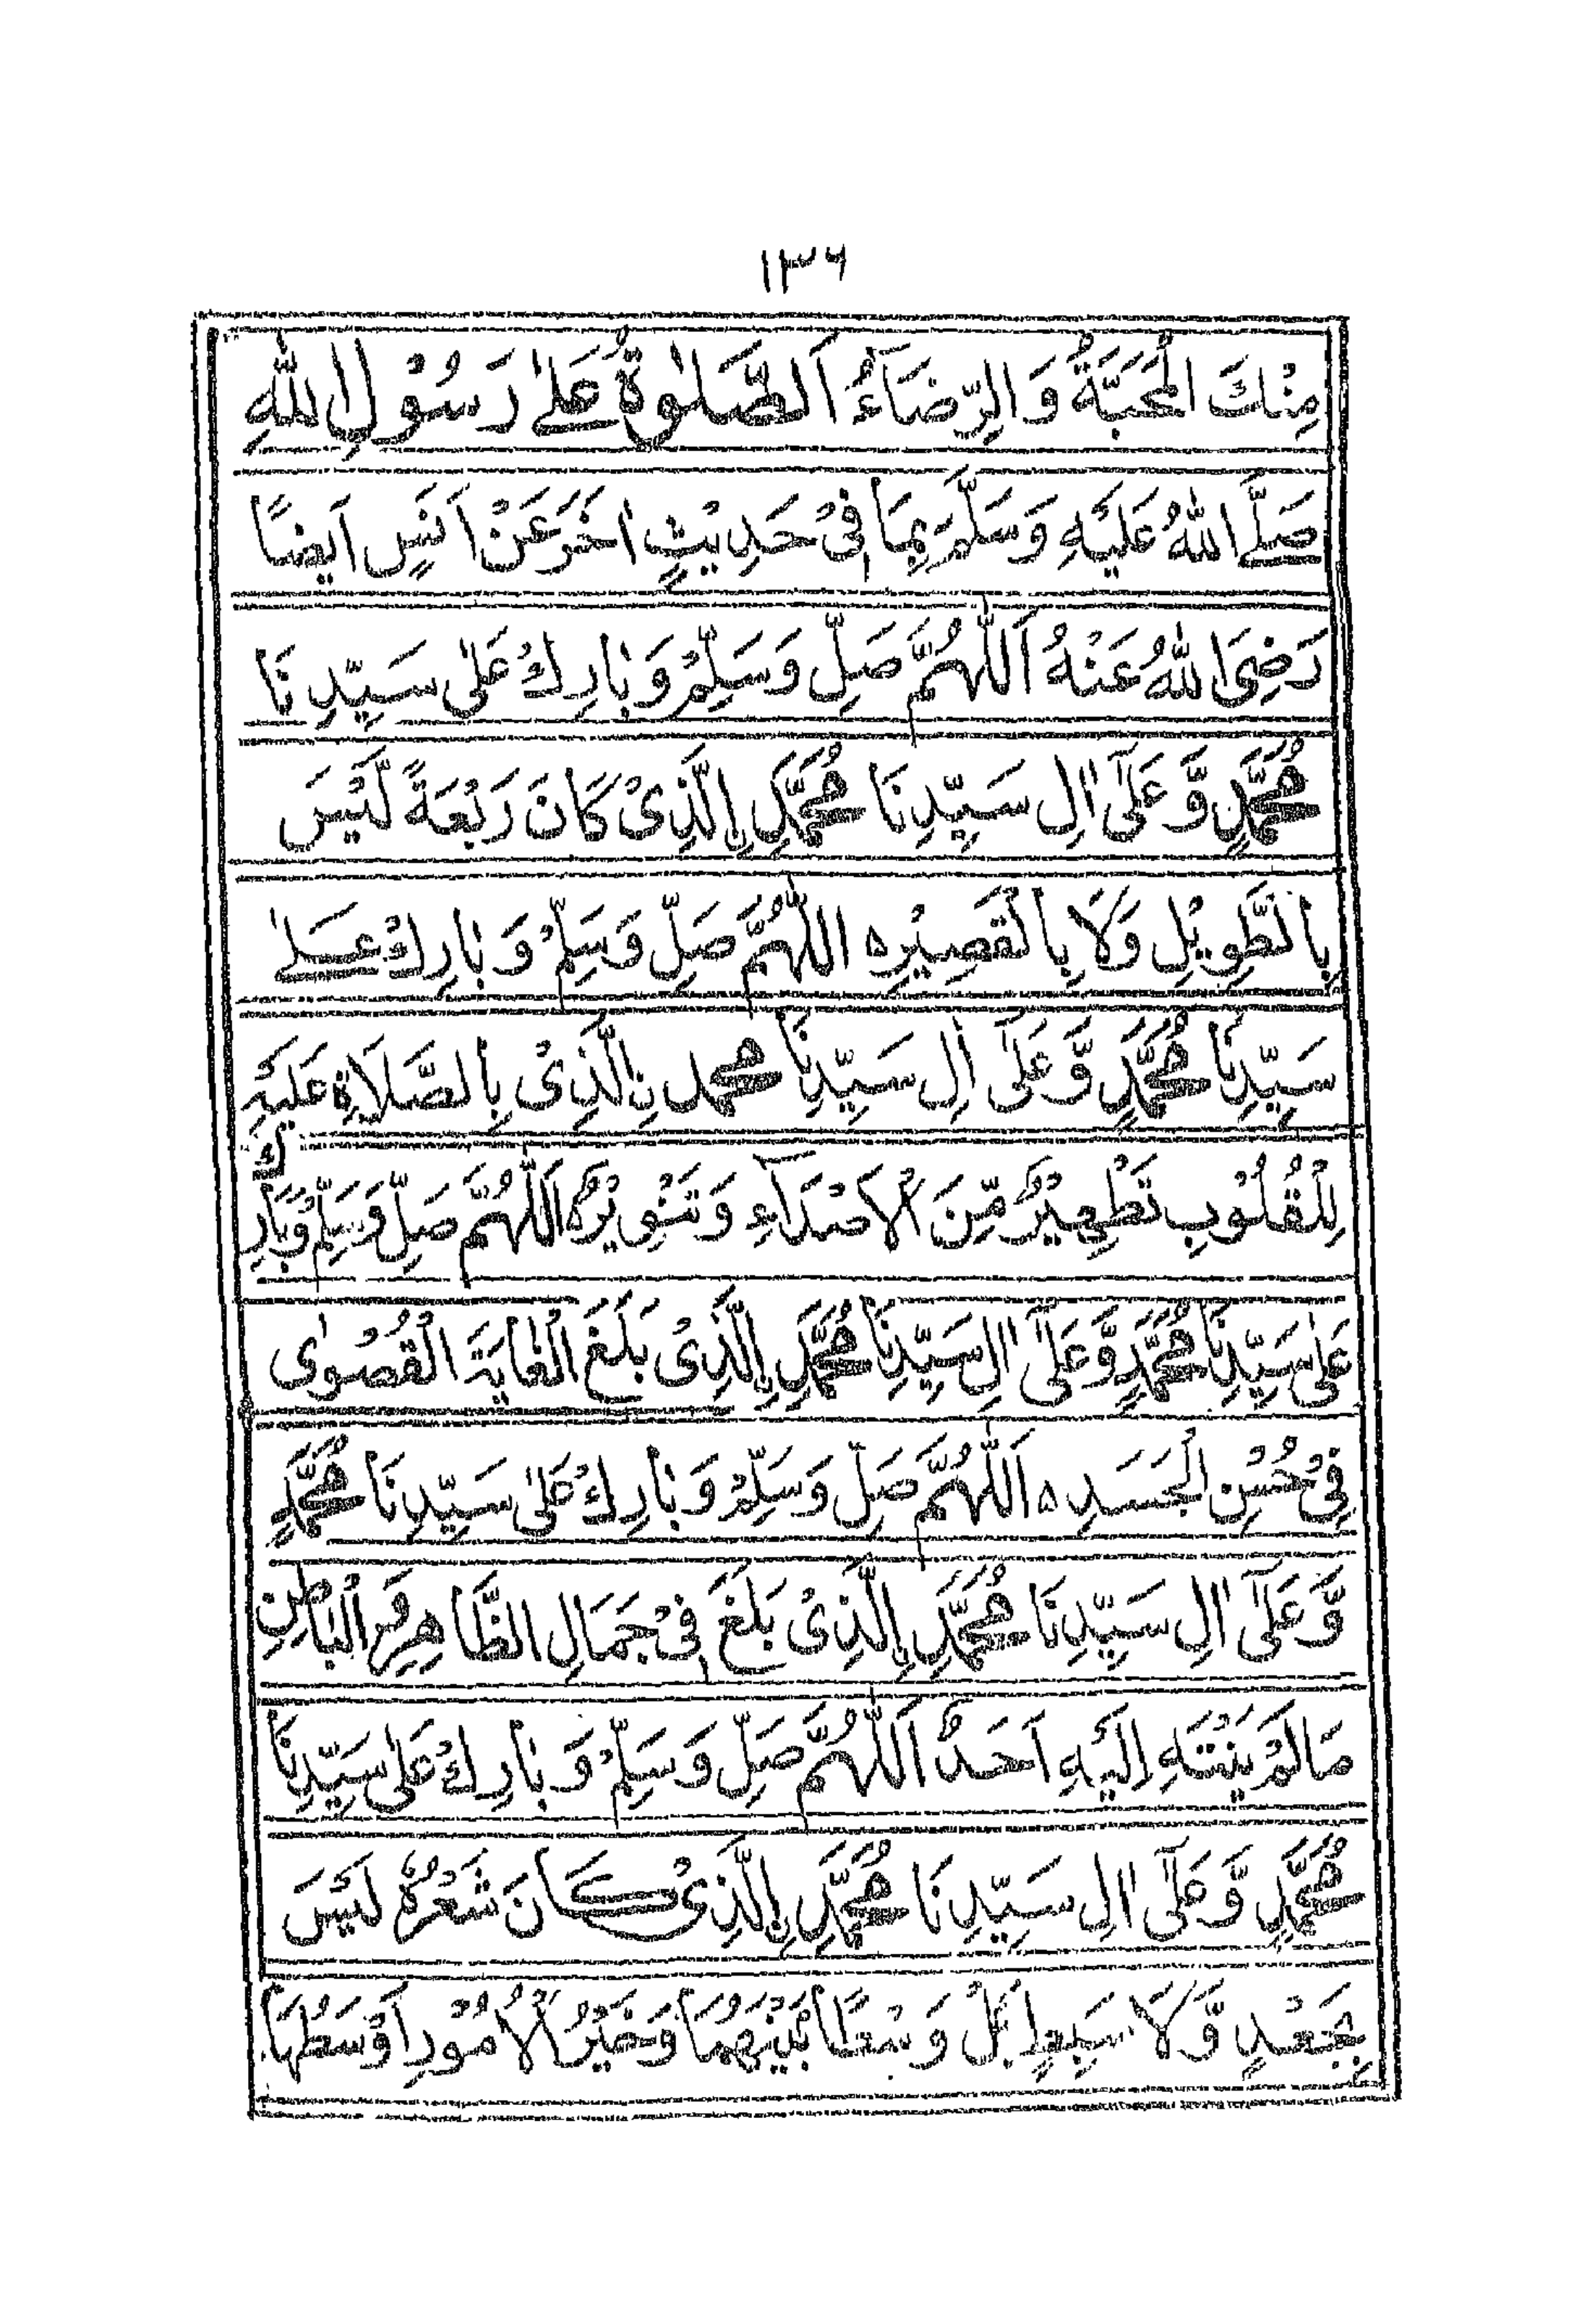 ۱۳۶
مِنْكَ الْمَحَبَّةُ وَالرِّضَآءُ اَلصَّلٰوةُ عَلٰے رَسُوْلِ اللهِ
صَلَّے اللهُ عَلَيْهِ وَسَلَّمَ بِمَا فِیْ حَدِيْثٍ اٰخَرَ عَنْ اَنَسٍ اَيْضًا
رَضِیَ اللهُ عَنْهُ اَللّٰهُمَّ صَلِّ وَسَلِّمْ وَبَارِكْ عَلٰی سَيِّدِنَا
مُحَمَّدٍ وَّعَلٰٓی اٰلِ سَيِّدِنَا مُحَمَّدِ ۨالَّذِیْ كَانَ رَبْعَةً لَّيْسَ
بِالطَّوِيْلِ وَلَا بِالْقَصِيْرِ ه اللّٰهُمَّ صَلِّ وَسَلِّمْ وَبَارِكْ عَلٰے
سَيِّدِنَا مُحَمَّدٍ وَّعَلٰٓی اٰلِ سَيِّدِنَا محمد نِ الَّذِیْ بِالصَّلَاةِ عَلَيْهِ
لِلْقُلُوْبِ تَطْهِيْرٌ مِّنَ الْاَصْدَآءِ وَتَنْوِيْرٌ ه اَللّٰهُمَّ صَلِّ وَسَلِّمْ وَبَارِكْ
عَلٰی سَيِّدِنَا مُحَمَّدٍ وَّعَلٰٓی اٰلِ سَيِّدِنَا مُحَمَّدِ ۨالَّذِیْ بَلَغَ الْغَايَةَ الْقُصْوٰی
فِیْ حُسْنِ الْجَسَدِ ه اَللّٰهُمَّ صَلِّ وَسَلِّمْ وَبَارِكْ عَلٰی سَيِّدِنَا مُحَمَّدٍ
وَّعَلٰٓی اٰلِ سَيِّدِنَا مُحَمَّدِ ۨالَّذِیْ بَلَغَ فِیْ جَمَالِ الظَّاهِرِ وَالْبَاطِنِ
مَا لَمْ يَنْتَهِ اِلَيْهِ اَحَدٌ اَللّٰهُمَّ صَلِّ وَسَلِّمْ وَبَارِكْ عَلٰی سَيِّدِنَا
مُحَمَّدٍ وَّعَلٰٓی اٰلِ سَيِّدِنَا مُحَمَّدِ ۨالَّذِیْ كَانَ شَعْرُهٗ لَيْسَ
بِجَعْدٍ وَّلَا سَبِطٍ بَلْ وَسْطًا بَيْنَهُمَا وَخَيْرُ الْاُمُوْرِ اَوْسَطُهَا